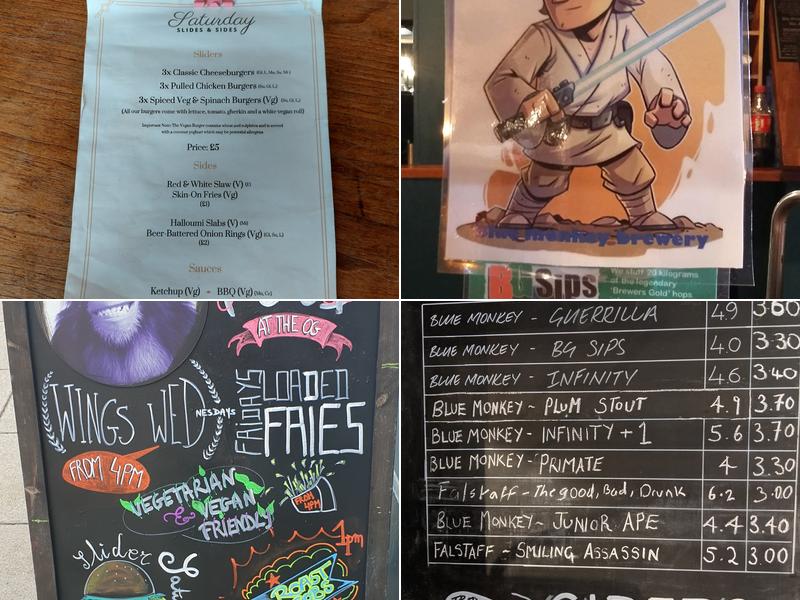 Saturday
SLIDES & SIDES
Sliders
3x Classic Cheeseburgers
3x Pulled Chicken Burgers
3x Spiced Veg & Spinach Burgers (Vg)
(All our burgers come with lettuce, tomato, gherkin and a white vegan roll)
Important Note: The Vegan Burger contains wheat and sulphites and is served
with a coconut yoghurt which may be potential allergens
Price: £5
Sides
Red & White Slaw (V)
Skin-On Fries (Vg)
(£3)
Halloumi Slabs (V)
Beer-Battered Onion Rings (Vg)
(£2)
Sauces
Ketchup (Vg) - BBQ (Vg)
blue monkey brewery
BG Sips
We stuff 20 kilograms
of the legendary
'Brewers Gold' hops
AT THE OG
WINGS WEDNESDAYS
FROM 4PM
FRIDAYS
LOADED
FRIES
FROM
4PM
VEGETARIAN
& VEGAN
FRIENDLY
Slider
1pm
ROAST
BLUE MONKEY - GUERRILLA 4.9 3.60
BLUE MONKEY - BG SIPS 4.0 3.30
BLUE MONKEY - INFINITY 4.6 3.40
BLUE MONKEY - PLUM STOUT 4.9 3.70
BLUE MONKEY - INFINITY + 1 5.6 3.70
BLUE MONKEY - PRIMATE 4 3.30
Falstaff - The good, Bad, Drunk 6.2 3.00
BLUE MONKEY - JUNIOR APE 4.4 3.40
FALSTAFF - SMILING ASSASSIN 5.2 3.00